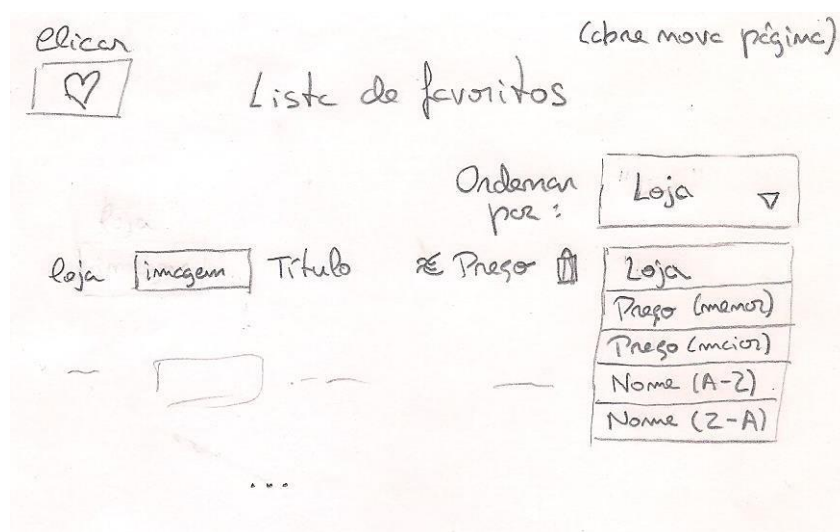 Clicar
(abre nova página)
Lista de favoritos
Ordenar
por :
Loja
loja imagem Título € Preço
Loja
Preço (menor)
Preço (maior)
Nome (A-Z)
Nome (Z-A)
...